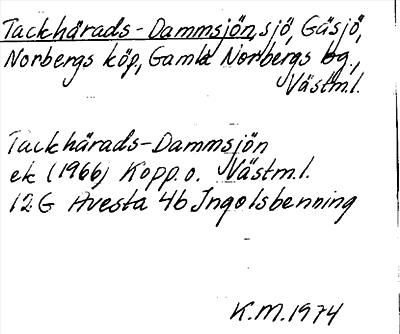 Tackhärads-Dammsjön, sjö, Gäsjö,
Norbergs köp, Gamla Norbergs bg.,
Västm.l.
Tackhärads-Dammsjön
ek (1966) Kopp. o. Västm.l.
12G Avesta 4b Ingolsbenning
K.M. 1974